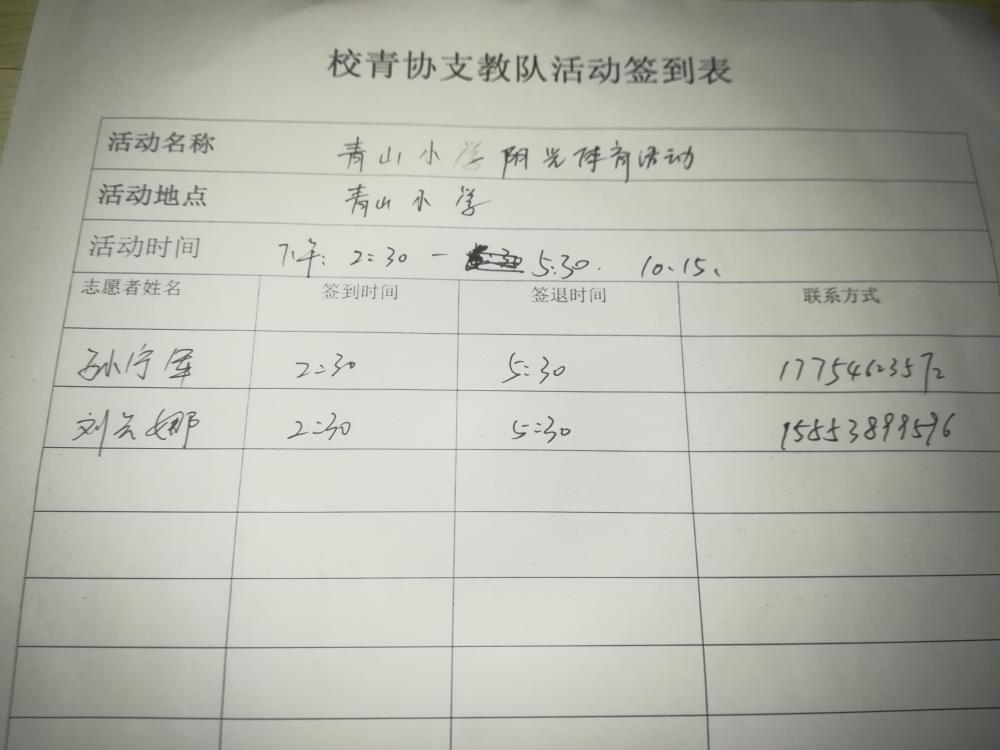 校青协支教队活动签到表
活动名称 青山小学阳光体育活动
活动地点 青山小学
活动时间 下午: 2:30 — 5:30. 10.15、
志愿者姓名 签到时间 签退时间 联系方式
孙宁军 2:30 5:30 17754623572
刘云娜 2:30 5:30